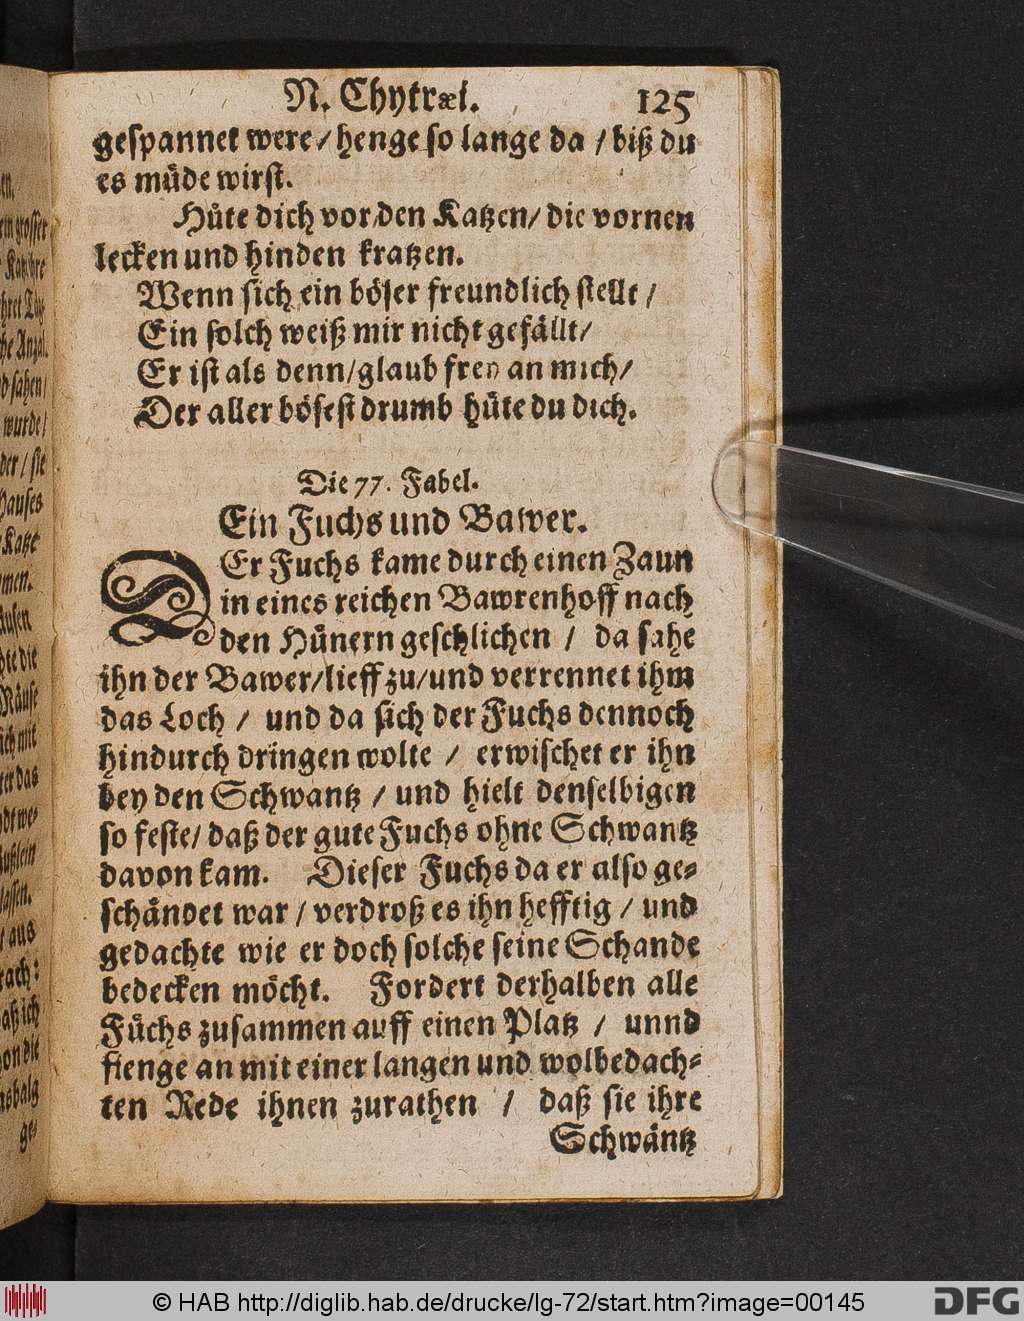 N. Chytræi. 125
gespannet were / henge so lange da / biß du
es müde wirst.
Hüte dich vor den Katzen / die vornen
lecken und hinden kratzen.
Wenn sich ein böser freundlich stellt /
Ein solch weiß mir nicht gefällt /
Er ist als denn / glaub frey an mich /
Der aller böseste drumb hüte du dich.
Die 77. Fabel.
Ein Fuchs und Bawer.
DEr Fuchs kame durch einen Zaun
in eines reichen Bawrenhoff nach
den Hünern geschlichen / da sahe
ihn der Bawer / lieff zu / und verrennet ihm
das Loch / und da sich der Fuchs dennoch
hindurch dringen wolte / erwischet er ihn
bey den Schwantz / und hielt denselbigen
so feste / daß der gute Fuchs ohne Schwantz
davon kam. Dieser Fuchs da er also ge-
schändet war / verdroß es ihn hefftig / und
gedachte wie er doch solche seine Schande
bedecken möcht. Fordert derhalben alle
Füchs zusammen auff einen Platz / unnd
fienge an mit einer langen und wolbedach-
ten Rede ihnen zurathen / daß sie ihre
Schwäntz
© HAB http://diglib.hab.de/drucke/lg-72/start.htm?image=00145
DFG